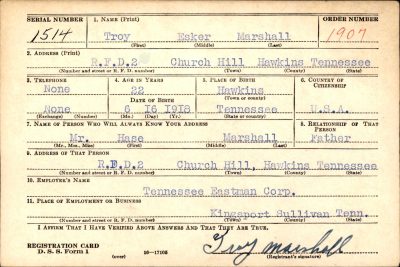 SERIAL NUMBER 1. NAME (Print) ORDER NUMBER
1514 Troy Esker Marshall 1907
(First) (Middle) (Last)
2. ADDRESS (Print)
R.F.D.2 Church Hill Hawkins Tennessee
(Number and street or R. F. D. number) (Town) (County) (State)
3. TELEPHONE 4. AGE IN YEARS 5. PLACE OF BIRTH 6. COUNTRY OF CITIZENSHIP
None 22 Hawkins
DATE OF BIRTH (Town or county)
None 6 16 1918 Tennessee U.S.A.
(Exchange) (Number) (Mo.) (Day) (Yr.) (State or country)
7. NAME OF PERSON WHO WILL ALWAYS KNOW YOUR ADDRESS 8. RELATIONSHIP OF THAT PERSON
Mr. Hase Marshall Father
(Mr., Mrs., Miss) (First) (Middle) (Last)
9. ADDRESS OF THAT PERSON
R.F.D.2 Church Hill, Hawkins Tennessee
(Number and street or R. F. D. number) (Town) (County) (State)
10. EMPLOYER'S NAME
Tennessee Eastman Corp.
11. PLACE OF EMPLOYMENT OR BUSINESS
Kingsport Sullivan Tenn.
(Number and street or R. F. D. number) (Town) (County) (State)
I AFFIRM THAT I HAVE VERIFIED ABOVE ANSWERS AND THAT THEY ARE TRUE.
REGISTRATION CARD
D. S. S. Form 1 (over) 16—17105 Troy Marshall
(Registrant's signature)